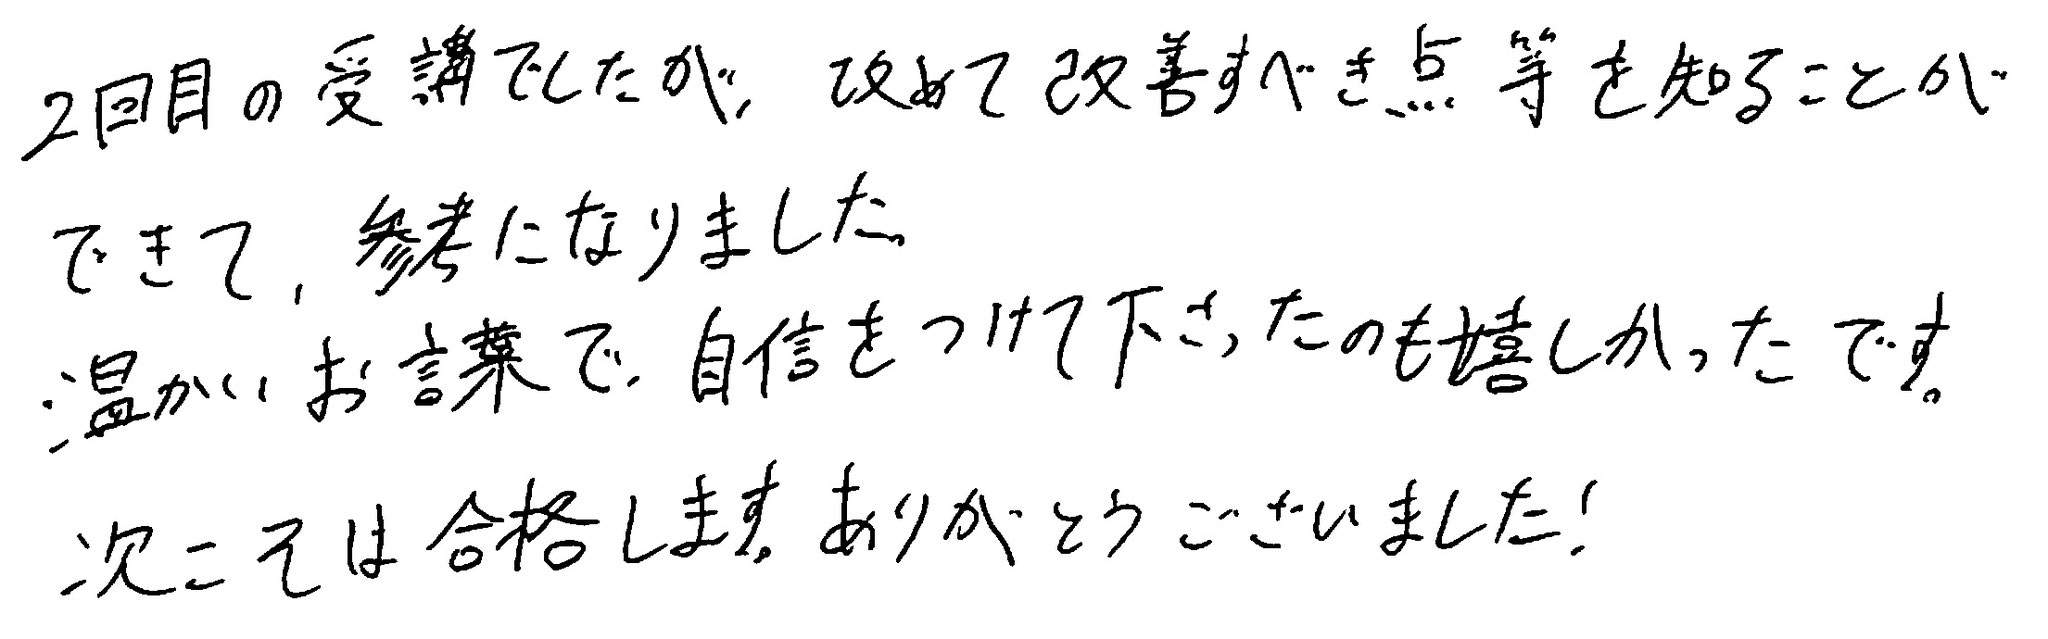 2回目の受講でしたが、改めて改善すべき点等を知ることが
できて、参考になりました。
温かいお言葉で、自信をつけて下さったのも嬉しかったです。
次こそは合格します。ありがとうございました！